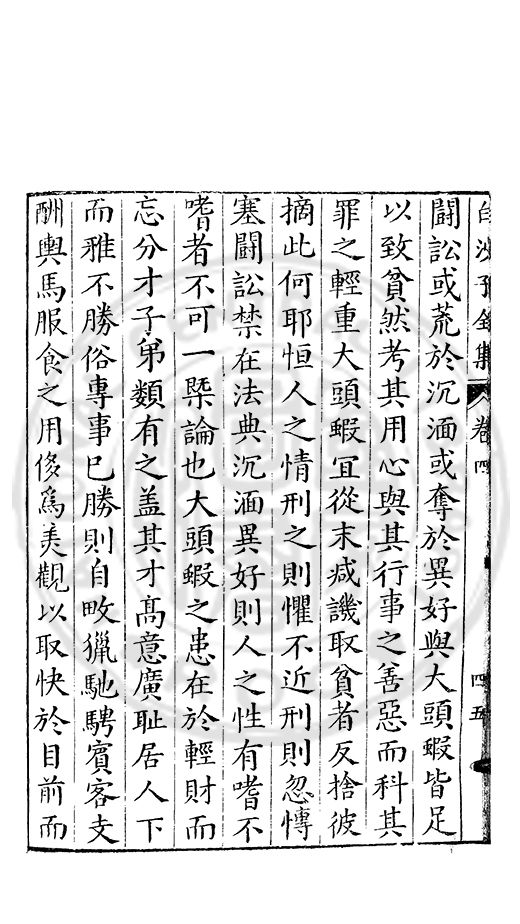 白沙子全集 卷四 四五
鬪訟或荒於沉湎或奪於異好與大頭蝦皆足
以致貧然考其用心與其行事之善惡而科其
罪之輕重大頭蝦宜從末减譏取貧者反捨彼
摘此何耶恒人之情刑之則懼不近刑則忽慱
塞鬪訟禁在法典沉湎異好則人之性有嗜不
嗜者不可一槩論也大頭蝦之患在於輕財而
忘分才子弟類有之盖其才高意廣耻居人下
而雅不勝俗專事已勝則自畋獵馳騁賓客支
酬輿馬服食之用侈爲美觀以取快於目前而